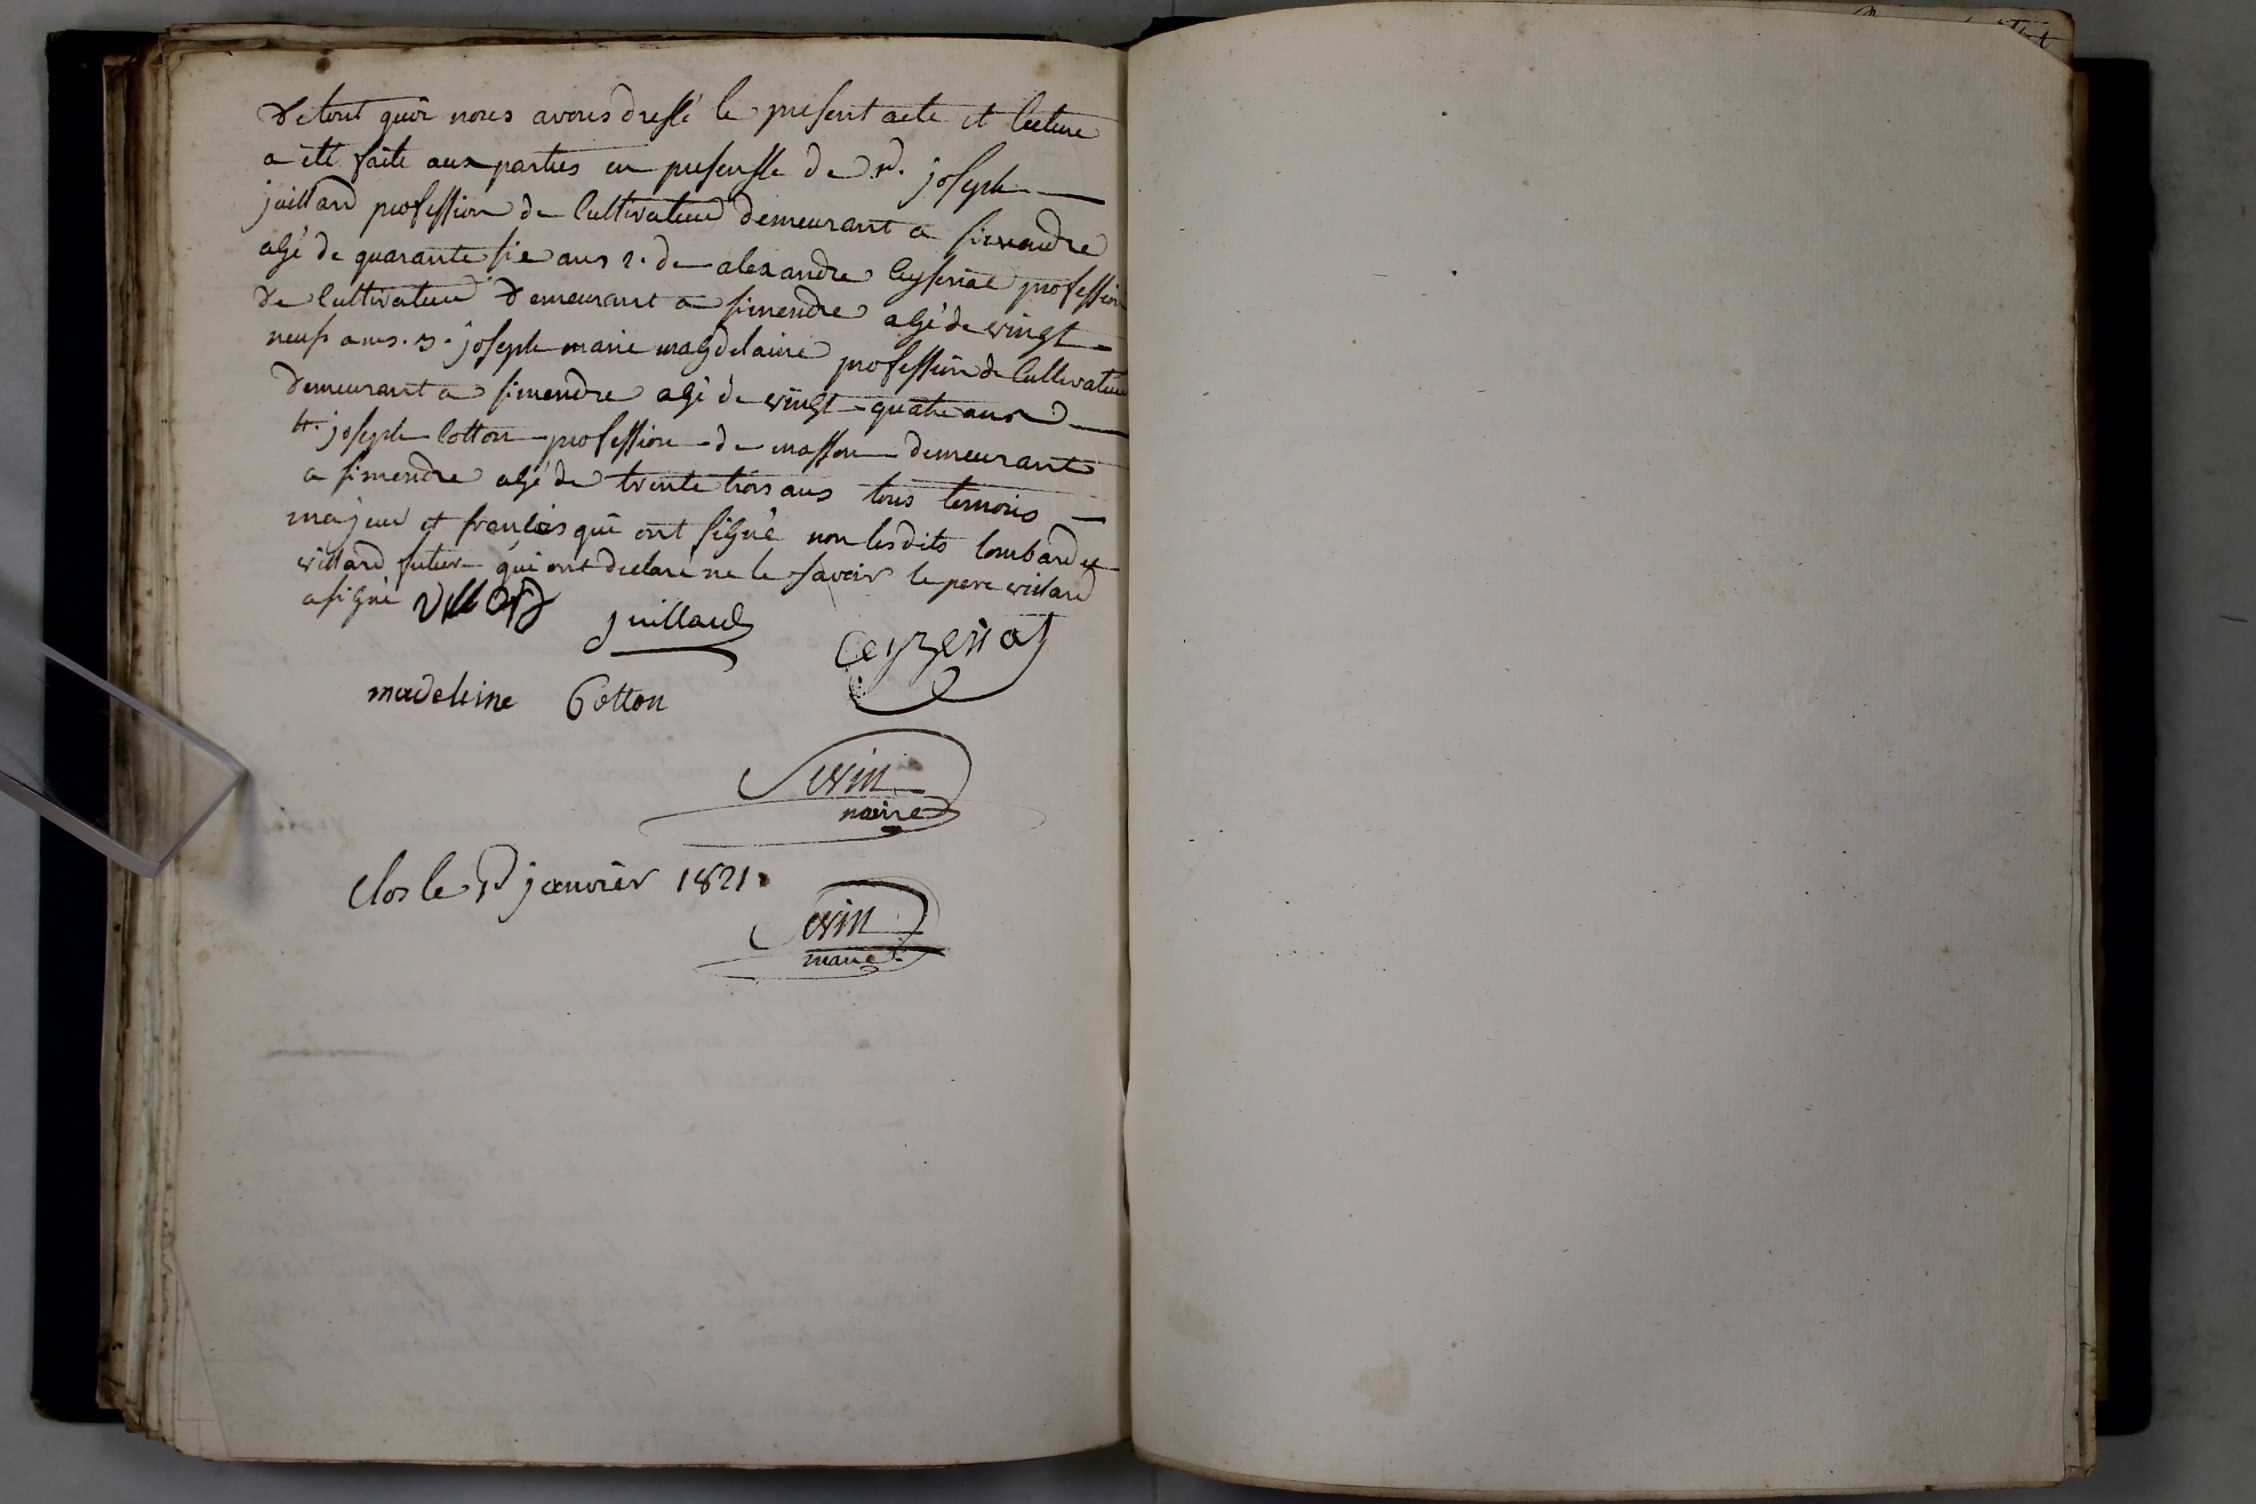 De tout quoi nous avons dressé le present acte et lecture
a été faite aux parties en presensse de joseph
juillard profession de cultivateur demeurant a simandre
agé de quarante sie ans 2. de alexandre Ceyseriat profession
de cultivateur demeurant a simendre agé de vingt
neuf ans. 3. joseph marie magdelaine profession de cultivateur
demeurant a simendre agé de vingt quatre ans
4. joseph Cotton profession de masson demeurant
a simendre agé de trente trois ans tous temoins
majeur et françois qui ont signé non lesdits lombard et
villard futur qui ont declaré ne le savoir le pere villard
a signé Villard
juillard
Ceyzeriat
madeleine Cotton
Sevin
maire
Clos le 1er janvier 1821.
Sevin
maire